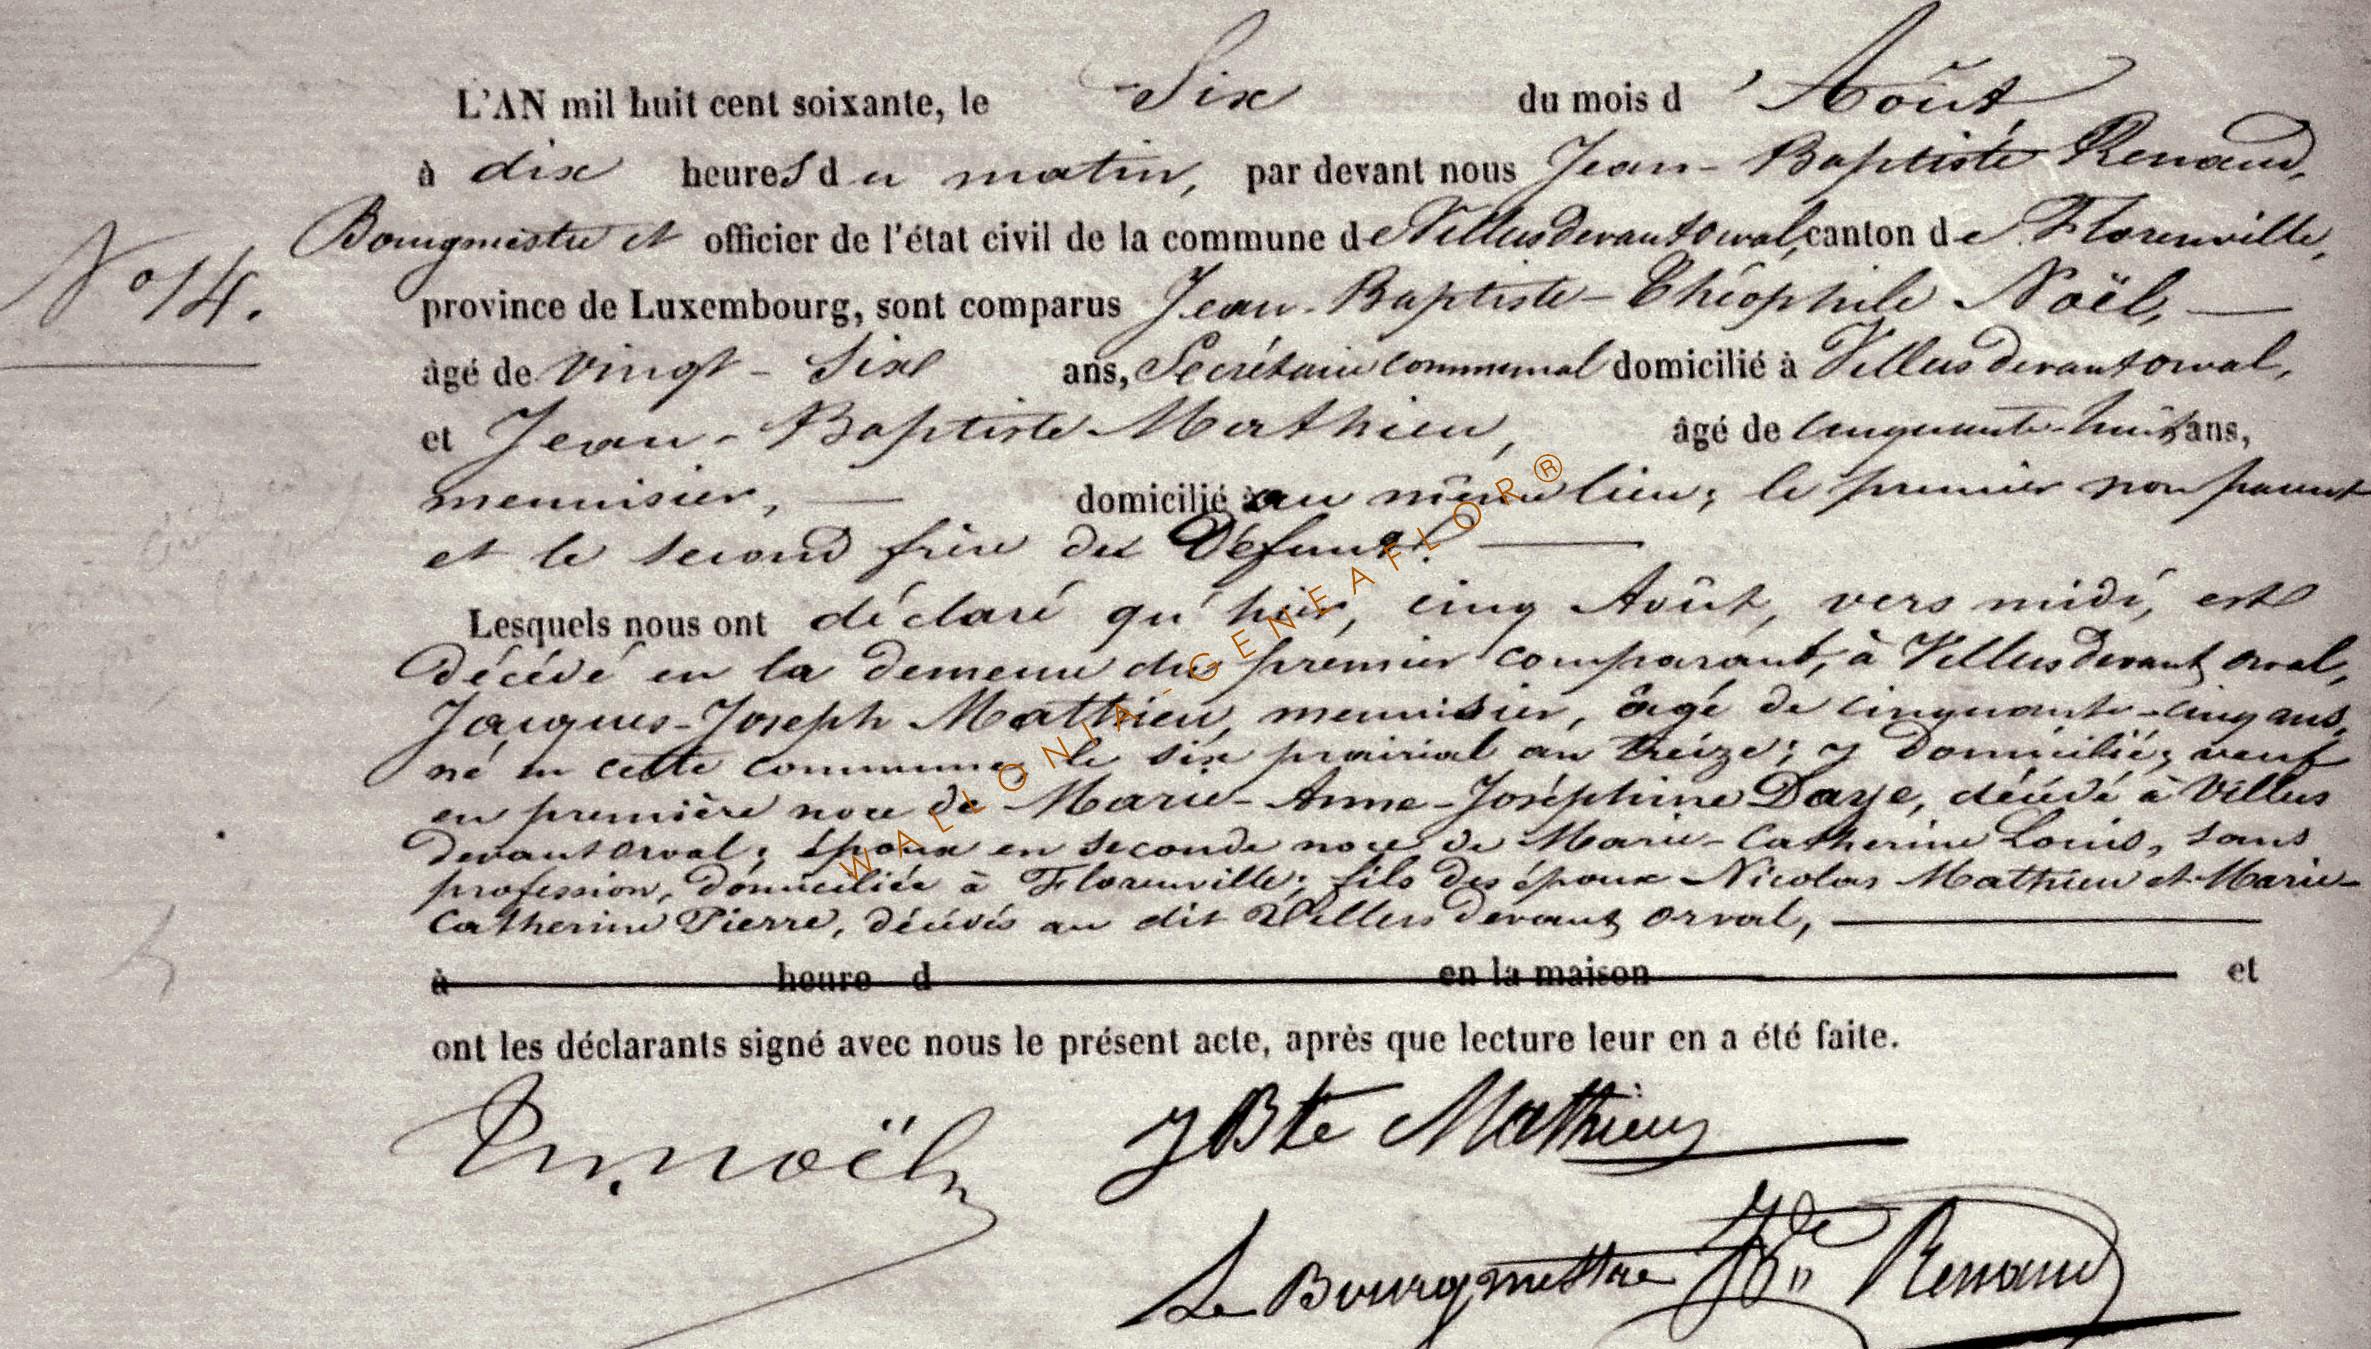 L'AN mil huit cent soixante, le Six du mois d'Août,
à dix heures du matin, par devant nous Jean-Baptiste Renaud,
Bourgmestre et officier de l'état civil de la commune de Villersdevantorval, canton de Florenville,
N° 14.
province de Luxembourg, sont comparus Jean-Baptiste-Théophile Noël, —
âgé de vingt-six ans, Secrétaire communal domicilié à Villersdevantorval,
et Jean-Baptiste Mathieu, âgé de cinquante-huit ans,
menuisier, — domicilié au même lieu; le premier non parent
et le second frère du Défunt. —
Lesquels nous ont déclaré qu'hier, cinq Août, vers midi, est
décédé en la demeure du premier comparant, à Villersdevant orval,
Jacques-Joseph Mathieu, menuisier, âgé de cinquante-cinq ans,
né en cette commune, le six prairial an treize; y domicilié; veuf
en première noce de Marie-Anne-Joséphine Daye, décédé à Villers
devantorval; époux en seconde noce de Marie-Catherine Louis, sans
profession, domiciliée à Florenville; fils des époux Nicolas Mathieu et Marie-
Catherine Pierre, décédés au dit Villersdevant orval, —
à heure d en la maison et
ont les déclarants signé avec nous le présent acte, après que lecture leur en a été faite.
noël JBte Mathieu
Le Bourgmestre Renaud
WALLONIA-GENEAFLOR®